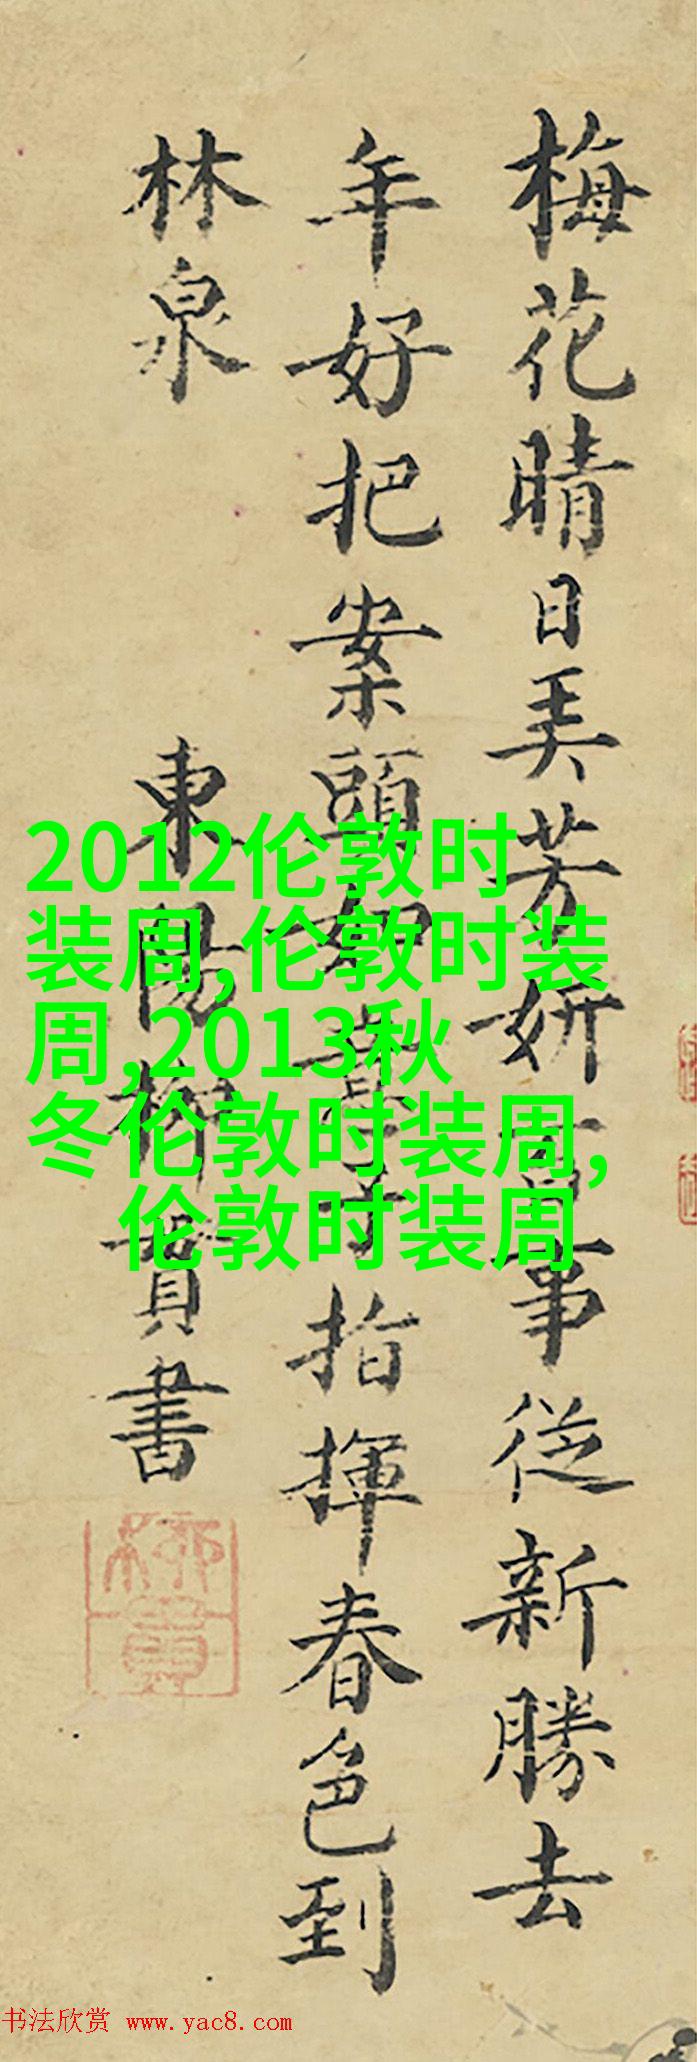 梅花晴日美芳妍百事從新勝去
年好把案頭如意子指揮春色到
林泉
東陽柳貫書
柳貫
2012伦敦时
装周,伦敦时装
周,2013秋
冬伦敦时装周,
伦敦时装周
书法欣赏 www.yac8.com